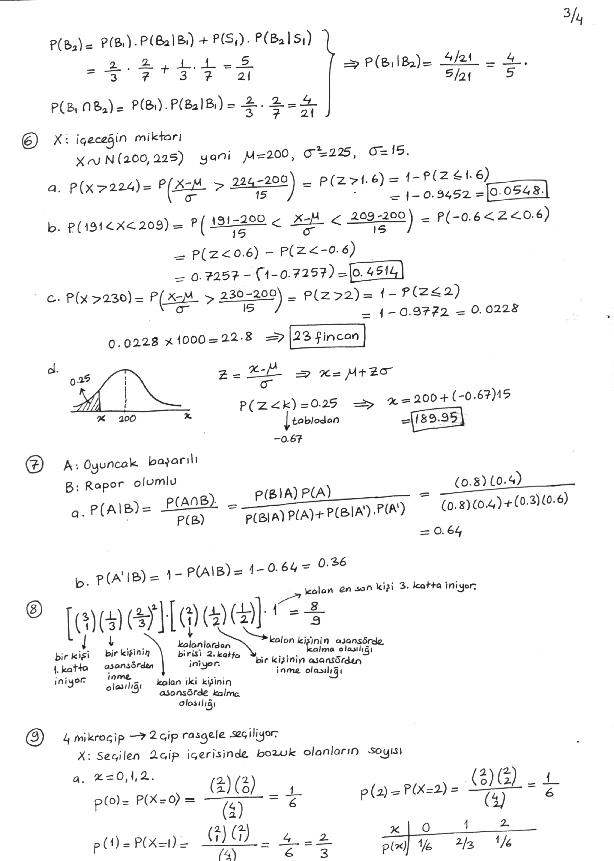 3/4
P(B₂) = P(B₁).P(B₂|B₁) + P(S₁).P(B₂|S₁)
= 2/3 . 2/7 + 1/3 . 1/7 = 5/21
⇒ P(B₁|B₂) = (4/21)/(5/21) = 4/5.
P(B₁∩B₂) = P(B₁).P(B₂|B₁) = 2/3 . 2/7 = 4/21
⑥ X: içeceğin miktarı
X~N(200,225) yani μ=200, σ²=225, σ=15.
a. P(X>224) = P((X-μ)/σ > (224-200)/15) = P(Z>1.6) = 1-P(Z≤1.6)
= 1-0.9452 = 0.0548.
b. P(191<X<209) = P((191-200)/15 < (X-μ)/σ < (209-200)/15) = P(-0.6<Z<0.6)
= P(Z<0.6) - P(Z<-0.6)
= 0.7257-(1-0.7257) = 0.4514
c. P(X>230) = P((X-μ)/σ > (230-200)/15) = P(Z>2) = 1-P(Z≤2)
= 1-0.9772 = 0.0228
0.0228 x 1000 = 22.8 ⇒ 23 fincan
d.
0.25
x 200 x
Z = (x-μ)/σ ⇒ x=μ+Zσ
P(Z<k) = 0.25 ⇒ x=200+(-0.67)15
tablodan
= 189.95
-0.67
⑦ A: Oyuncak başarılı
B: Rapor olumlu
a. P(A|B) = P(A∩B)/P(B) = P(B|A)P(A)/(P(B|A)P(A)+P(B|A').P(A')) = (0.8)(0.4)/((0.8)(0.4)+(0.3)(0.6))
= 0.64
b. P(A'|B) = 1-P(A|B) = 1-0.64 = 0.36
kalan en son kişi 3. katta iniyor.
⑧ [(3 1)(1/3)(2/3)²].[(2 1)(1/2)(1/2)].1 = 8/9
bir kişi 1. katta iniyor.
bir kişinin asansörden inme olasılığı
kalan iki kişinin asansörde kalma olasılığı
kalanlardan birisi 2. katta iniyor.
bir kişinin asansörden inme olasılığı
kalan kişinin asansörde kalma olasılığı
⑨ 4 mikroçip → 2 çip rasgele seçiliyor.
X: Seçilen 2 çip içerisinde bozuk olanların sayısı
a. x=0,1,2.
p(0) = P(X=0) = (2 2)(2 0)/(4 2) = 1/6
p(2) = P(X=2) = (2 0)(2 2)/(4 2) = 1/6
p(1) = P(X=1) = (2 1)(2 1)/(4 = 4/6 = 2/3
x 0 1 2
p(x) 1/6 2/3 1/6